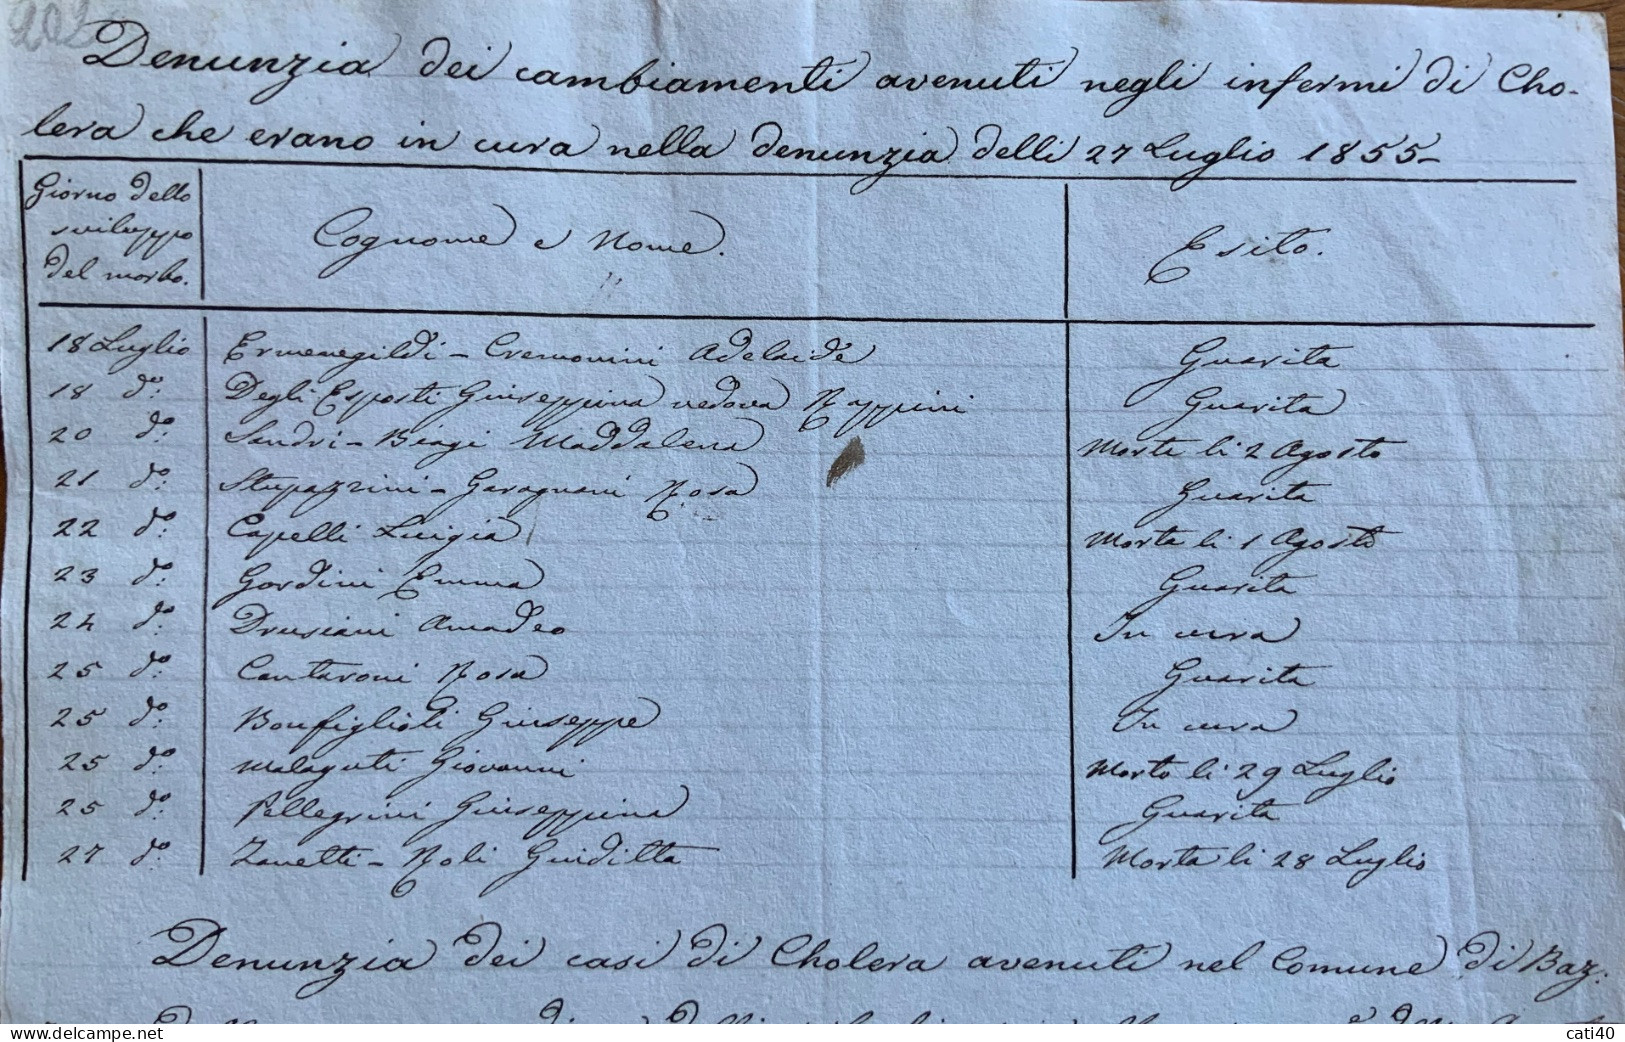 202
Denunzia dei cambiamenti avenuti negli infermi di Cho-
lera che erano in cura nella denunzia delli 27 Luglio 1855-
Giorno dello sviluppo del morbo. Cognome e Nome. Esito.
18 Luglio Ermenegildi - Cremonini Adelaide Guarita
18 do. Degli Esposti Giuseppina vedova Nappini Guarita
20 do. Sandri - Biagi Maddalena Morta li 2 Agosto
21 do. Stupazzini - Garagnani Rosa Guarita
22 do. Capelli Luigia Morta li 1 Agosto
23 do. Gordini Emma Guarita
24 do. Drusiani Amadeo In cura
25 do. Cantaroni Rosa Guarita
25 do. Bonfiglioli Giuseppe In cura
25 do. Malaguti Giovanni Morto li 29 Luglio
25 do. Pellegrini Giuseppina Guarita
27 do. Zanetti - Noli Giuditta Morta li 28 Luglio
Denunzia dei casi di Cholera avenuti nel Comune di Baz:
cati40